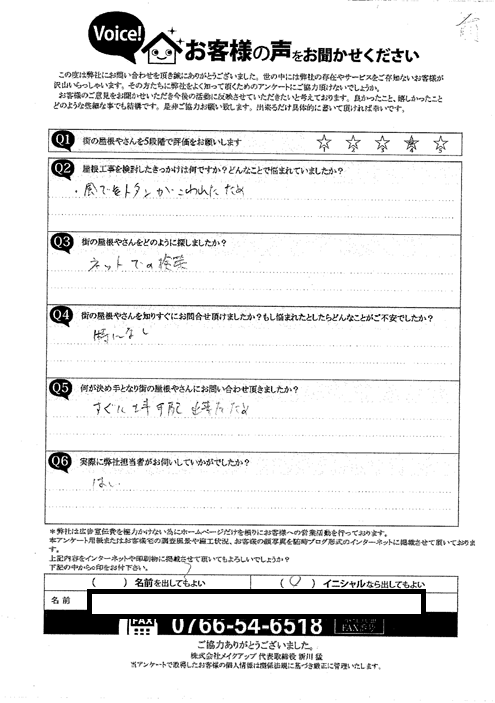 前
Voice!
お客様の声をお聞かせください
この度は弊社にお問い合わせを頂き誠にありがとうございました。世の中には弊社の存在やサービスをご存知ないお客様が
沢山いらっしゃいます。その方たちに弊社をよく知って頂くためのアンケートにご協力頂けないでしょうか。
お客様のご意見をお聞かせいただき今後の活動に反映させていただきたいと考えております。良かったこと、嬉しかったこと
どのような些細な事でも結構です。是非ご協力お願い致します。出来るだけ具体的に書いて頂ければ幸いです。
Q1 街の屋根やさんを5段階で評価をお願いします
1 2 3 4 5
Q2 屋根工事を検討したきっかけは何ですか?どんなことで悩まれていましたか?
・風でをトタンがこわれたため
Q3 街の屋根やさんをどのように探しましたか?
ネットでの検索
Q4 街の屋根やさんを知りすぐにお問合せ頂けましたか?もし悩まれたとしたらどんなことがご不安でしたか?
特になし
Q5 何が決め手となり街の屋根やさんにお問い合わせ頂きましたか?
すぐに 出来たため
Q6 実際に弊社担当者がお伺いしていかがでしたか?
はい
*弊社は広告宣伝費を極力かけない為にホームページだけを頼りにお客様への営業活動を行っております。
本アンケート用紙またはお客様宅の調査風景や施工状況、お客様の顔写真を随時ブログ形式のインターネットに掲載させて頂いておりま
す。
上記内容をインターネットや印刷物に掲載させて頂いてもよろしいでしょうか?
下記の中から○印をお付け下さい。
( )名前を出してもよい (○)イニシャルなら出してもよい
名前
FAX 0766-54-6518
ご協力ありがとうございました。
株式会社メイクアップ 代表取締役 新川 猛
当アンケートで取得したお客様の個人情報は関係法規に基づき厳正に管理いたします。